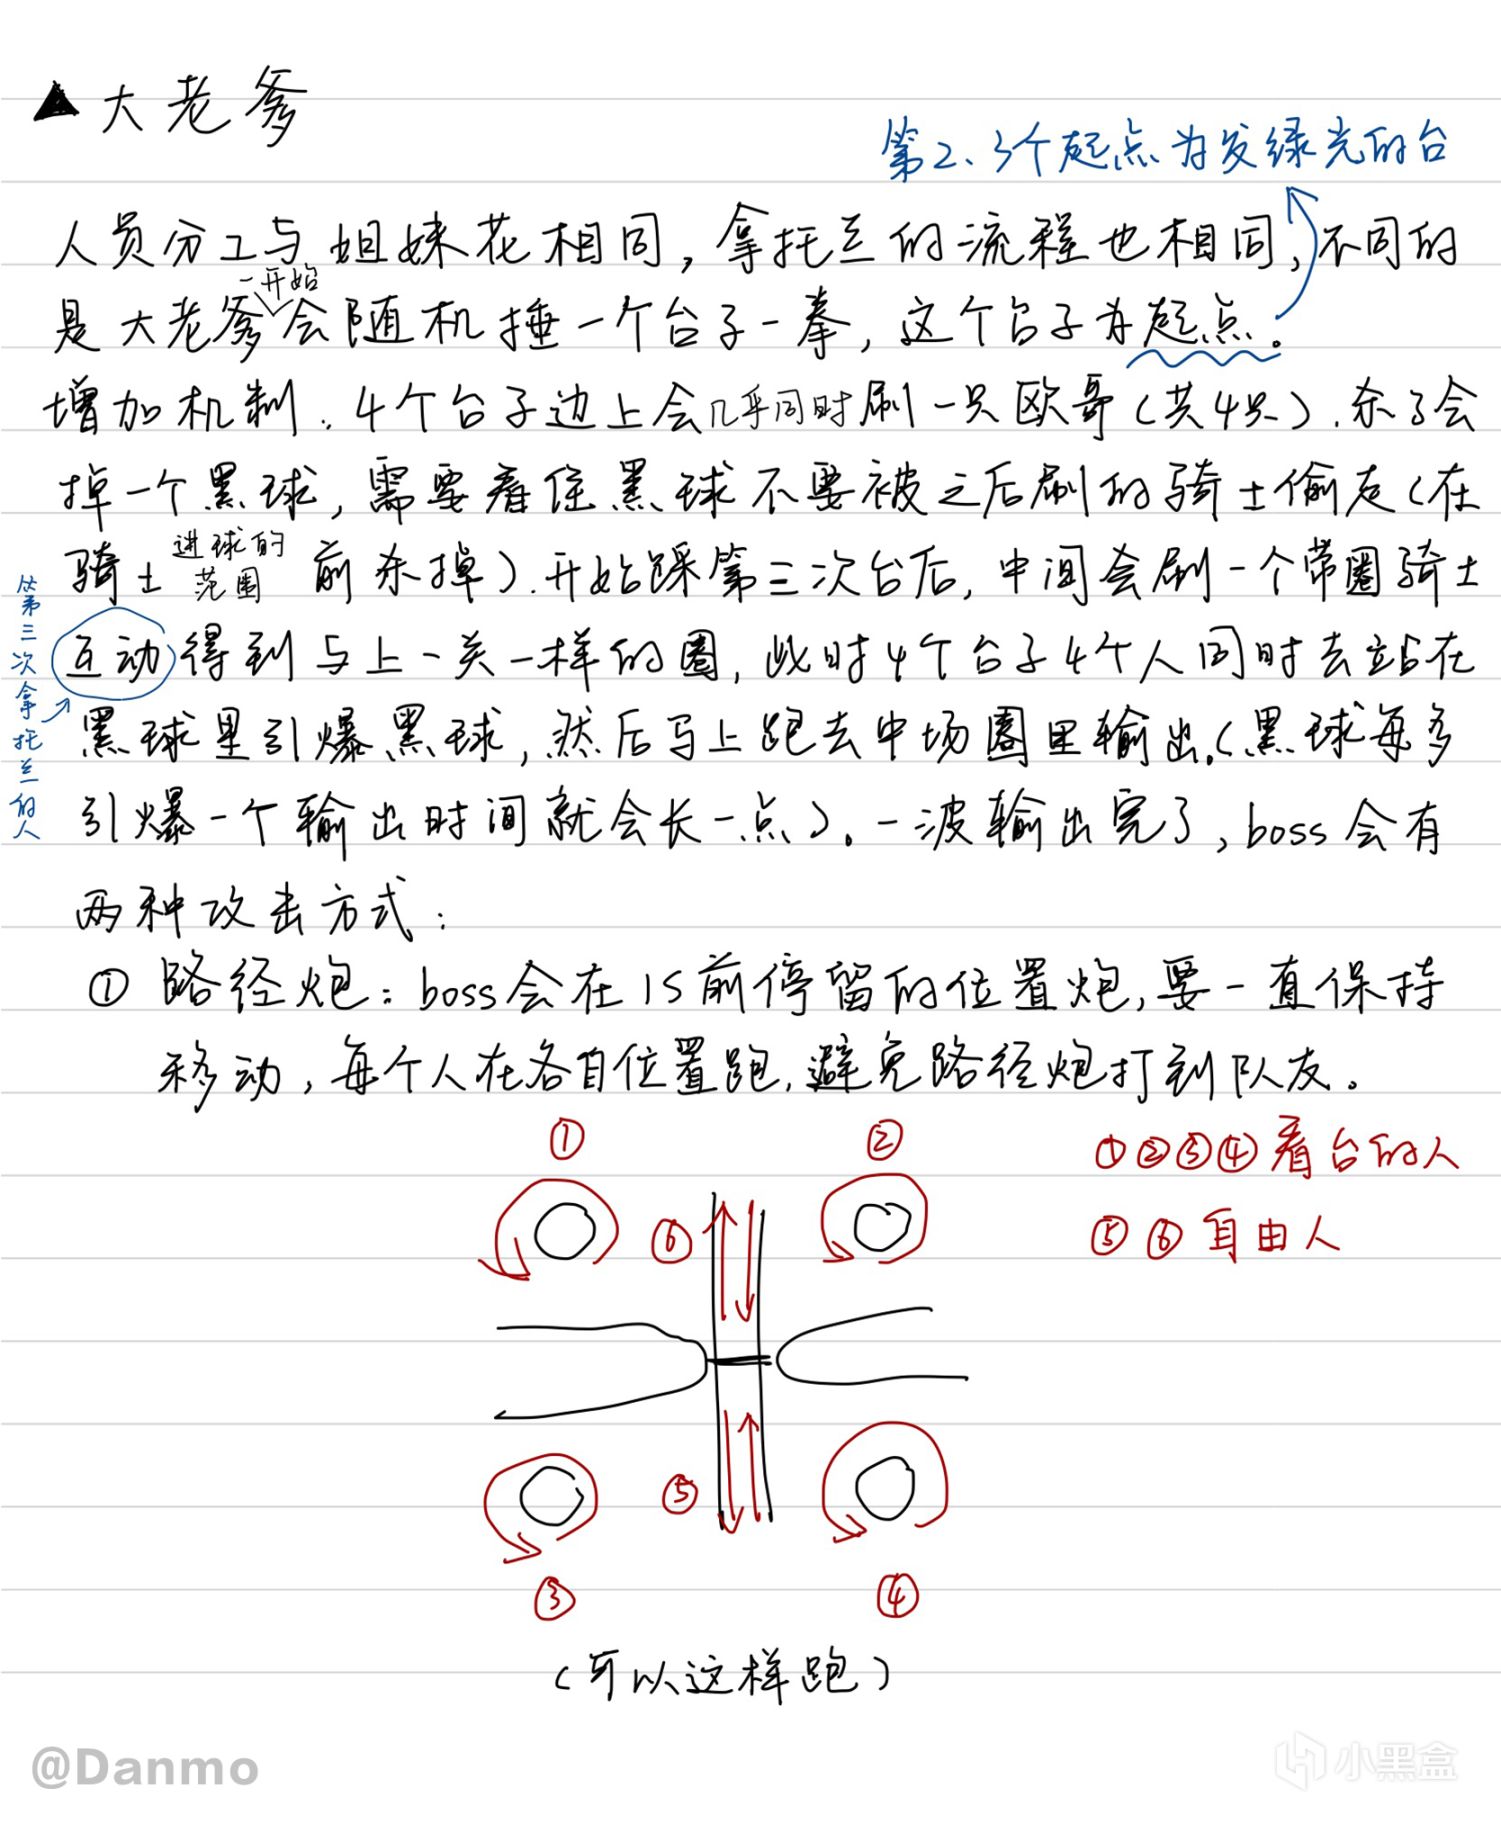 ▲ 大老爹
第2、3个起点为发绿光的台
人员分工与姐妹花相同，拿托兰的流程也相同，不同的
一开始
是大老爹会随机捶一个台子一拳，这个台子为起点。
增加机制：4个台子边上会几乎同时刷一只欧哥（共4只）.杀了会
掉一个黑球，需要看住黑球不要被之后刷的骑士偷走（在
骑士进球的范围前杀掉）.开始踩第三次台后，中间会刷一个带圈骑士
互动得到与上一关一样的圈，此时4个台子4个人同时去站在
第三次拿托兰的人
黑球里引爆黑球，然后马上跑去中场圈里输出.（黑球每多
引爆一个输出时间就会长一点）。一波输出完了，boss会有
两种攻击方式：
① 路径炮：boss会在1S前停留的位置炮，要一直保持
移动，每个人在各自位置跑，避免路径炮打到队友。
① ② ①②③④看台的人
⑥ ⑤⑥自由人
⑤
③ ④
（可以这样跑）
@Danmo 小黑盒